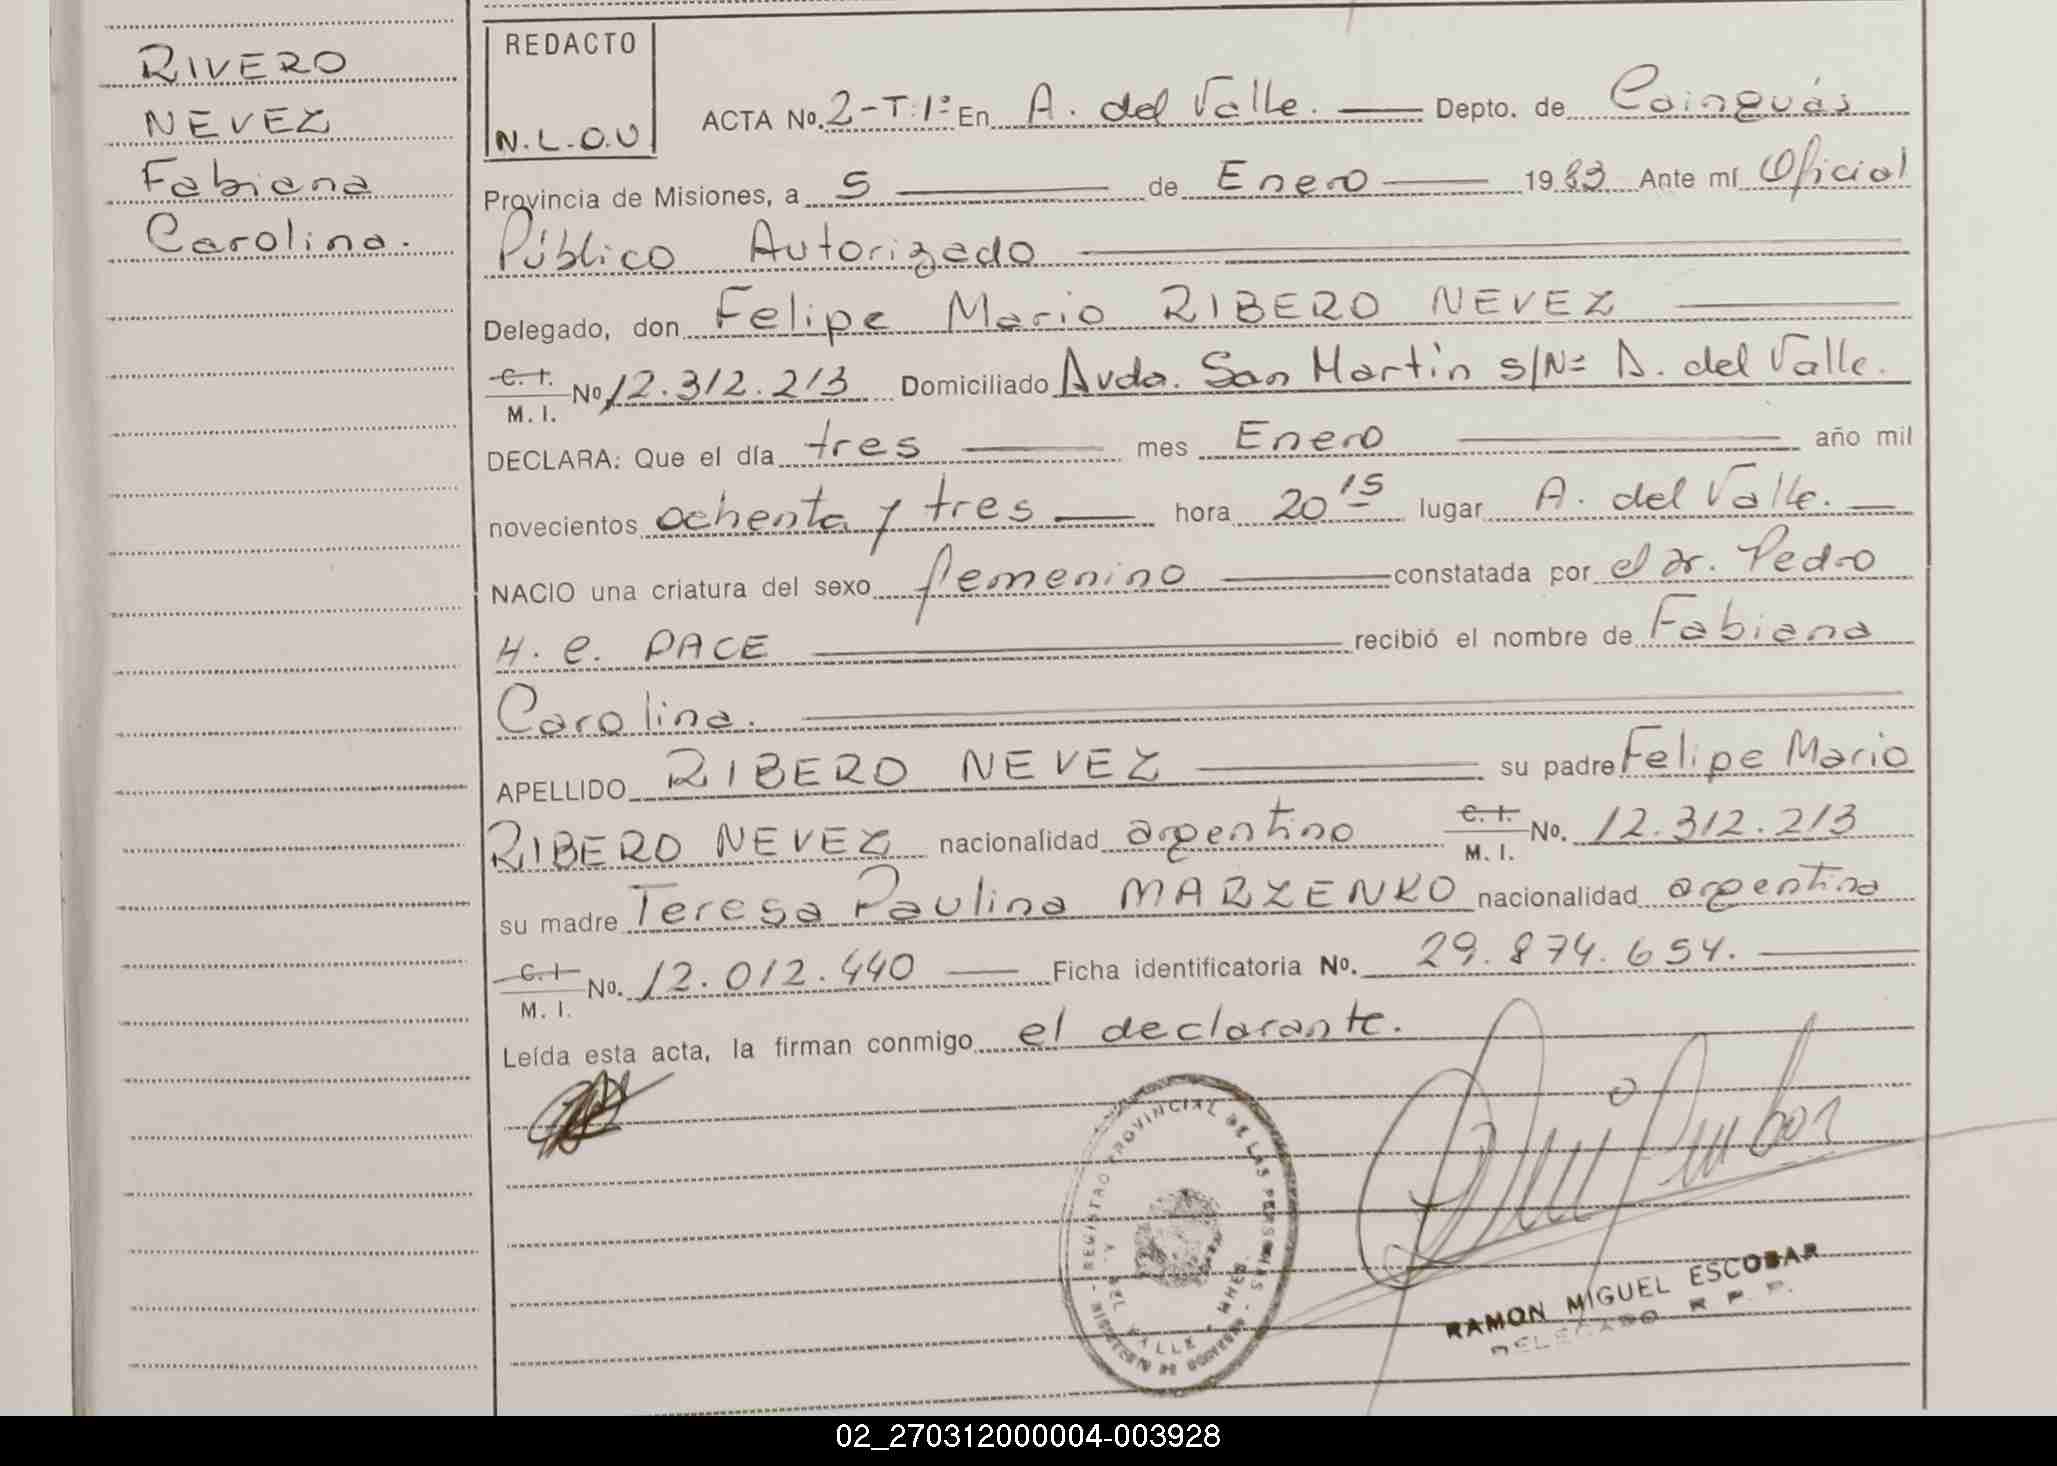 RIVERO
NEVEZ
Fabiana
Carolina.
REDACTO
N.L.O.U
ACTA No. 2-T:1º En A. del Valle. Depto. de Cainguás
Provincia de Misiones, a 5 de Enero 1983 Ante mí Oficial
Público Autorizado
Delegado, don Felipe Mario RIBERO NEVEZ
C. I. M. I. No 12.312.213 Domiciliado Avda. San Martin s/Nº A. del Valle.
DECLARA: Que el día tres mes Enero año mil
novecientos ochenta y tres hora 20 15 lugar A. del Valle.
NACIO una criatura del sexo femenino constatada por el Dr. Pedro
H. C. PACE recibió el nombre de Fabiana
Carolina.
APELLIDO RIBERO NEVEZ su padre Felipe Mario
RIBERO NEVEZ nacionalidad argentino C. I. M. I. No. 12.312.213
su madre Teresa Paulina MARZENKO nacionalidad argentina
C. I M. I. No. 12.012.440 Ficha identificatoria No. 29.874.654.
Leída esta acta, la firman conmigo el declarante.
REGISTRO PROVINCIAL DE LAS PERSONAS
DEL VALLE - MNES
RAMON MIGUEL ESCOBAR
DELEGADO R P P.
02_270312000004-003928